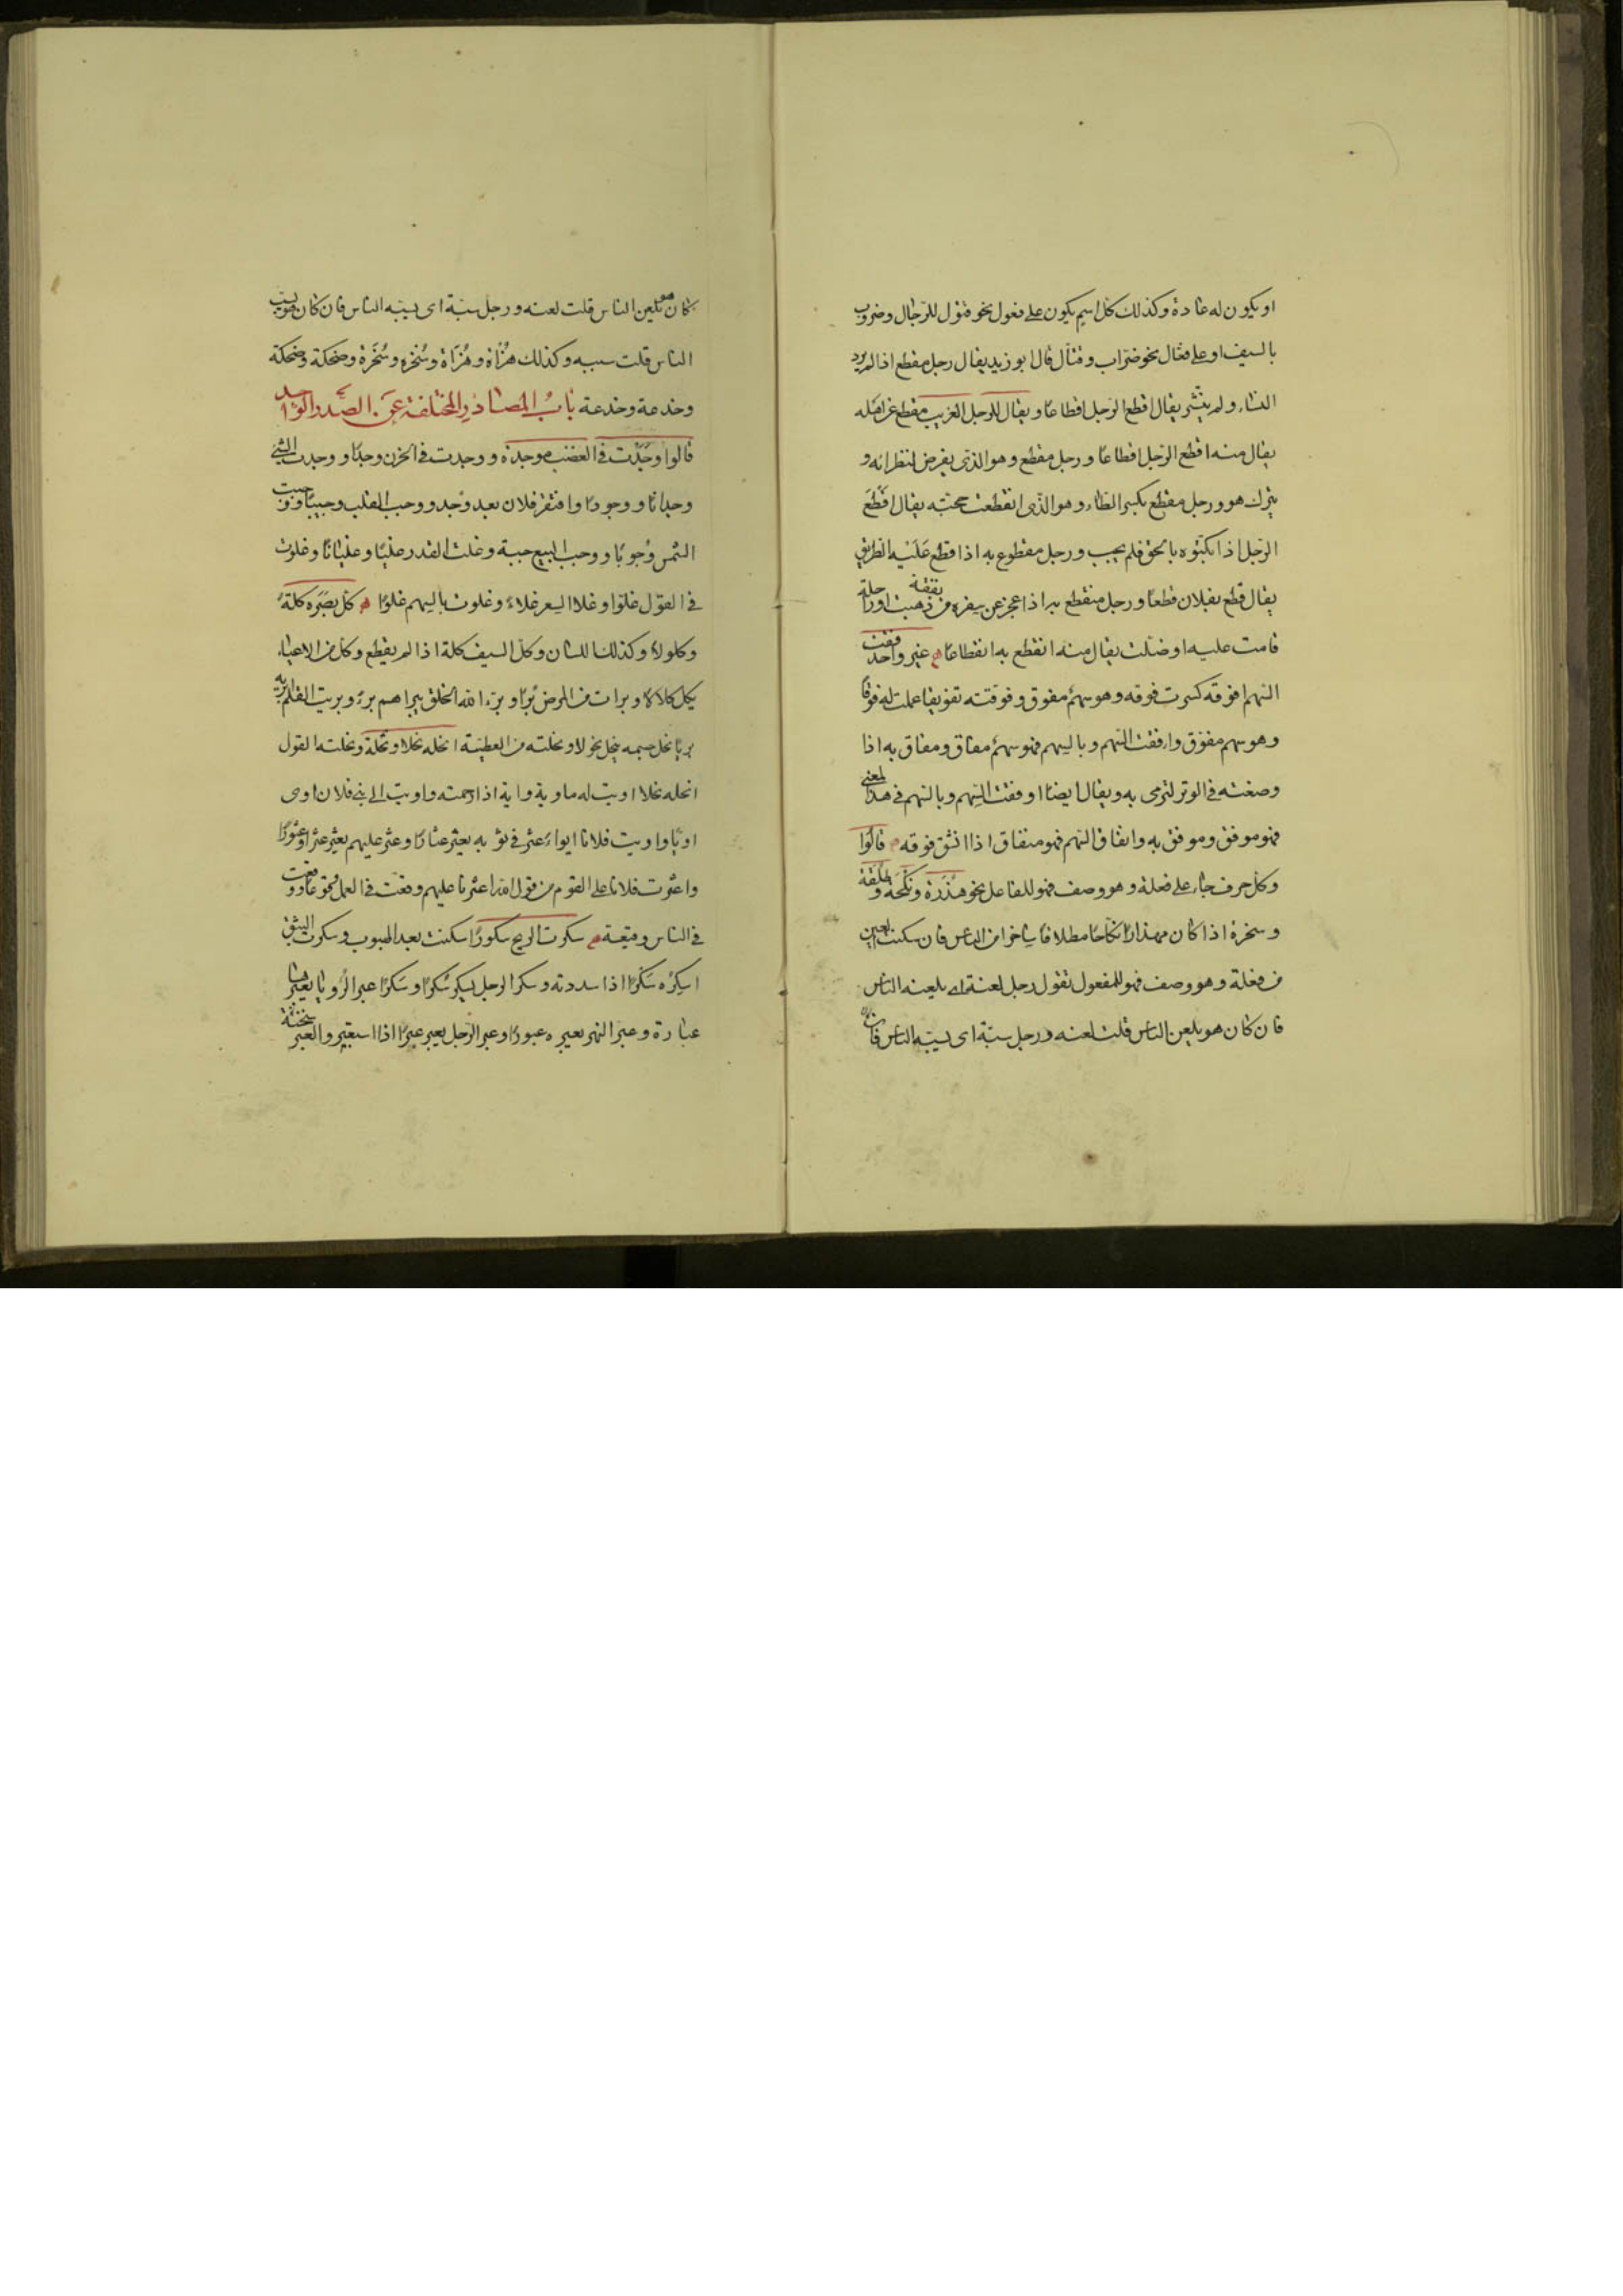 او يكون له عادة وكذلك كل اسم يكون على فعول نحو قتول للرجال وضروب
بالسيف او على فعّال نحو ضرّاب وقتّال قال ابو زيد يقال رجل مقطع اذا لم يرد
النساء ولم ينتشر يقال اقطع الرجل اقطاعا ويقال للرجل الغريب مقطع عن اهله
يقال منه اقطع الرجل اقطاعا ورجل مقطع وهو الذي يفرض لنظرائه و
يترك هو ورجل مقطع بكسر الطاء وهو الذي انقطعت حجته يقال اقطع
الرجل اذا بكتوه بالحق فلم يجب ورجل مقطوع به اذا قطع عليه الطريق
يقال قطع بفلان قطعا ورجل منقطع به اذا عجز عن سفره من نفقة ذهبت او راحلة
قامت عليه او ضلت يقال منه انقطع به انقطاعا غير واحد فقت
السهم افوقه كسرت فوقه وهو سهم مفوق وفوقته تفويقا عملت له فوقا
وهو سهم مفوّق وافقت السهم وبالسهم فهو سهم مفاق ومفاق به اذا
وضعته في الوتر لترمي به ويقال ايضا اوفقت السهم وبالسهم في هذا المعنى
فهو موفق وموفق به وانفاق السهم فهو منفاق اذا انشق فوقه قالوا
وكل حرف جاء على فعلة وهو وصف فهو للفاعل نحو هذرة ونكحة وطلقة
وسخرة اذا كان مهذارا نكاحا مطلاقا ساخرا من الناس فان سكنت العين
من فعلة وهو وصف فهو للمفعول تقول رجل لعنة اي يلعنه الناس
فان كان هو يلعن الناس قلت لعنه ورجل سبّة اي يسبّه الناس فان
كان هو يلعن الناس قلت لعنه ورجل سبّة اي يسبّه الناس فان كان هو يسب
الناس قلت سببه وكذلك هزأة وهزأة وسخرة وسخرة وضحكة وضحكة
وخدعة وخدعة باب المصادر المختلفة عن الصدر الواحد
قالوا وجدت في الغضب موجدة ووجدت في الحزن وجدا ووجدت الشئ
وجدانا ووجودا وافتقر فلان بعد وجد ووجب القلب وجيبا ووجبت
الشمس وجوبا ووجب البيع جبة وغلت القدر غليا وغليانا وغلوت
في القول غلوا وغلا السعر غلاء وغلوت بالسهم غلوا كل بصره كلة
وكلولا وكذلك اللسان وكل السيف كلة اذا لم يقطع وكل من الاعياء
يكل كلالا وبرات من المرض برا وبرء الله الخلق يبراهم برء وبريت القلم ابريه
بريا نحل جسمه ينحل نحولا ونحلته من العطية انحله نحلا ونحلة ونحلته القول
انحله نحلا اويت له ماوية واية اذا رحمته واويت الى بني فلان اوى
اويا واويت فلانا ايواء عثر في ثوبه يعثر عثارا وعثر عليهم يعثر عثرا وعثورا
واعثرت فلانا على القوم من قول الله اعثرنا عليهم وقعت في العمل وقوعا ووقعت
في الناس وقيعة سكرت الريح سكورا سكنت بعد الهبوب وسكرت البثق
اسكره سكرا اذا سددته وسكر الرجل يسكر سكرا وسكرا عبر الرويا يعبرها
عبارة وعبر النهر يعبره عبورا وعبر الرجل يعبر عبرا اذا استعبر والعبر سخنة